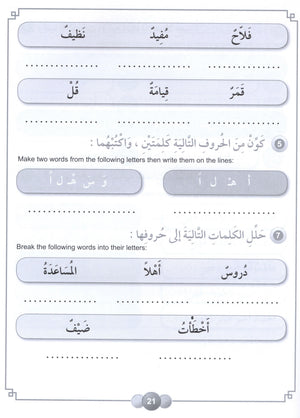 فَلَّاحٌ مُفِيدٌ نَظِيفٌ
قَمَرٌ قِيَامَةٌ قُلْ
٥ كَوِّنْ مِنَ الحُروفِ التَّالِيَةِ كَلِمَتَيْنِ ، وَاكْتُبْهُما :
Make two words from the following letters then write them on the lines:
أ هـْ ل اً وَ مِنْ هـْ ل اً
٧ حَلِّلِ الكَلِماتِ التَّالِيَةَ إلى حُروفِها :
Break the following words into their letters:
دُروسٌ أَهْلاً المُسَاعَدَةُ
أَخْطَأْتُ ضَيْفٌ
21